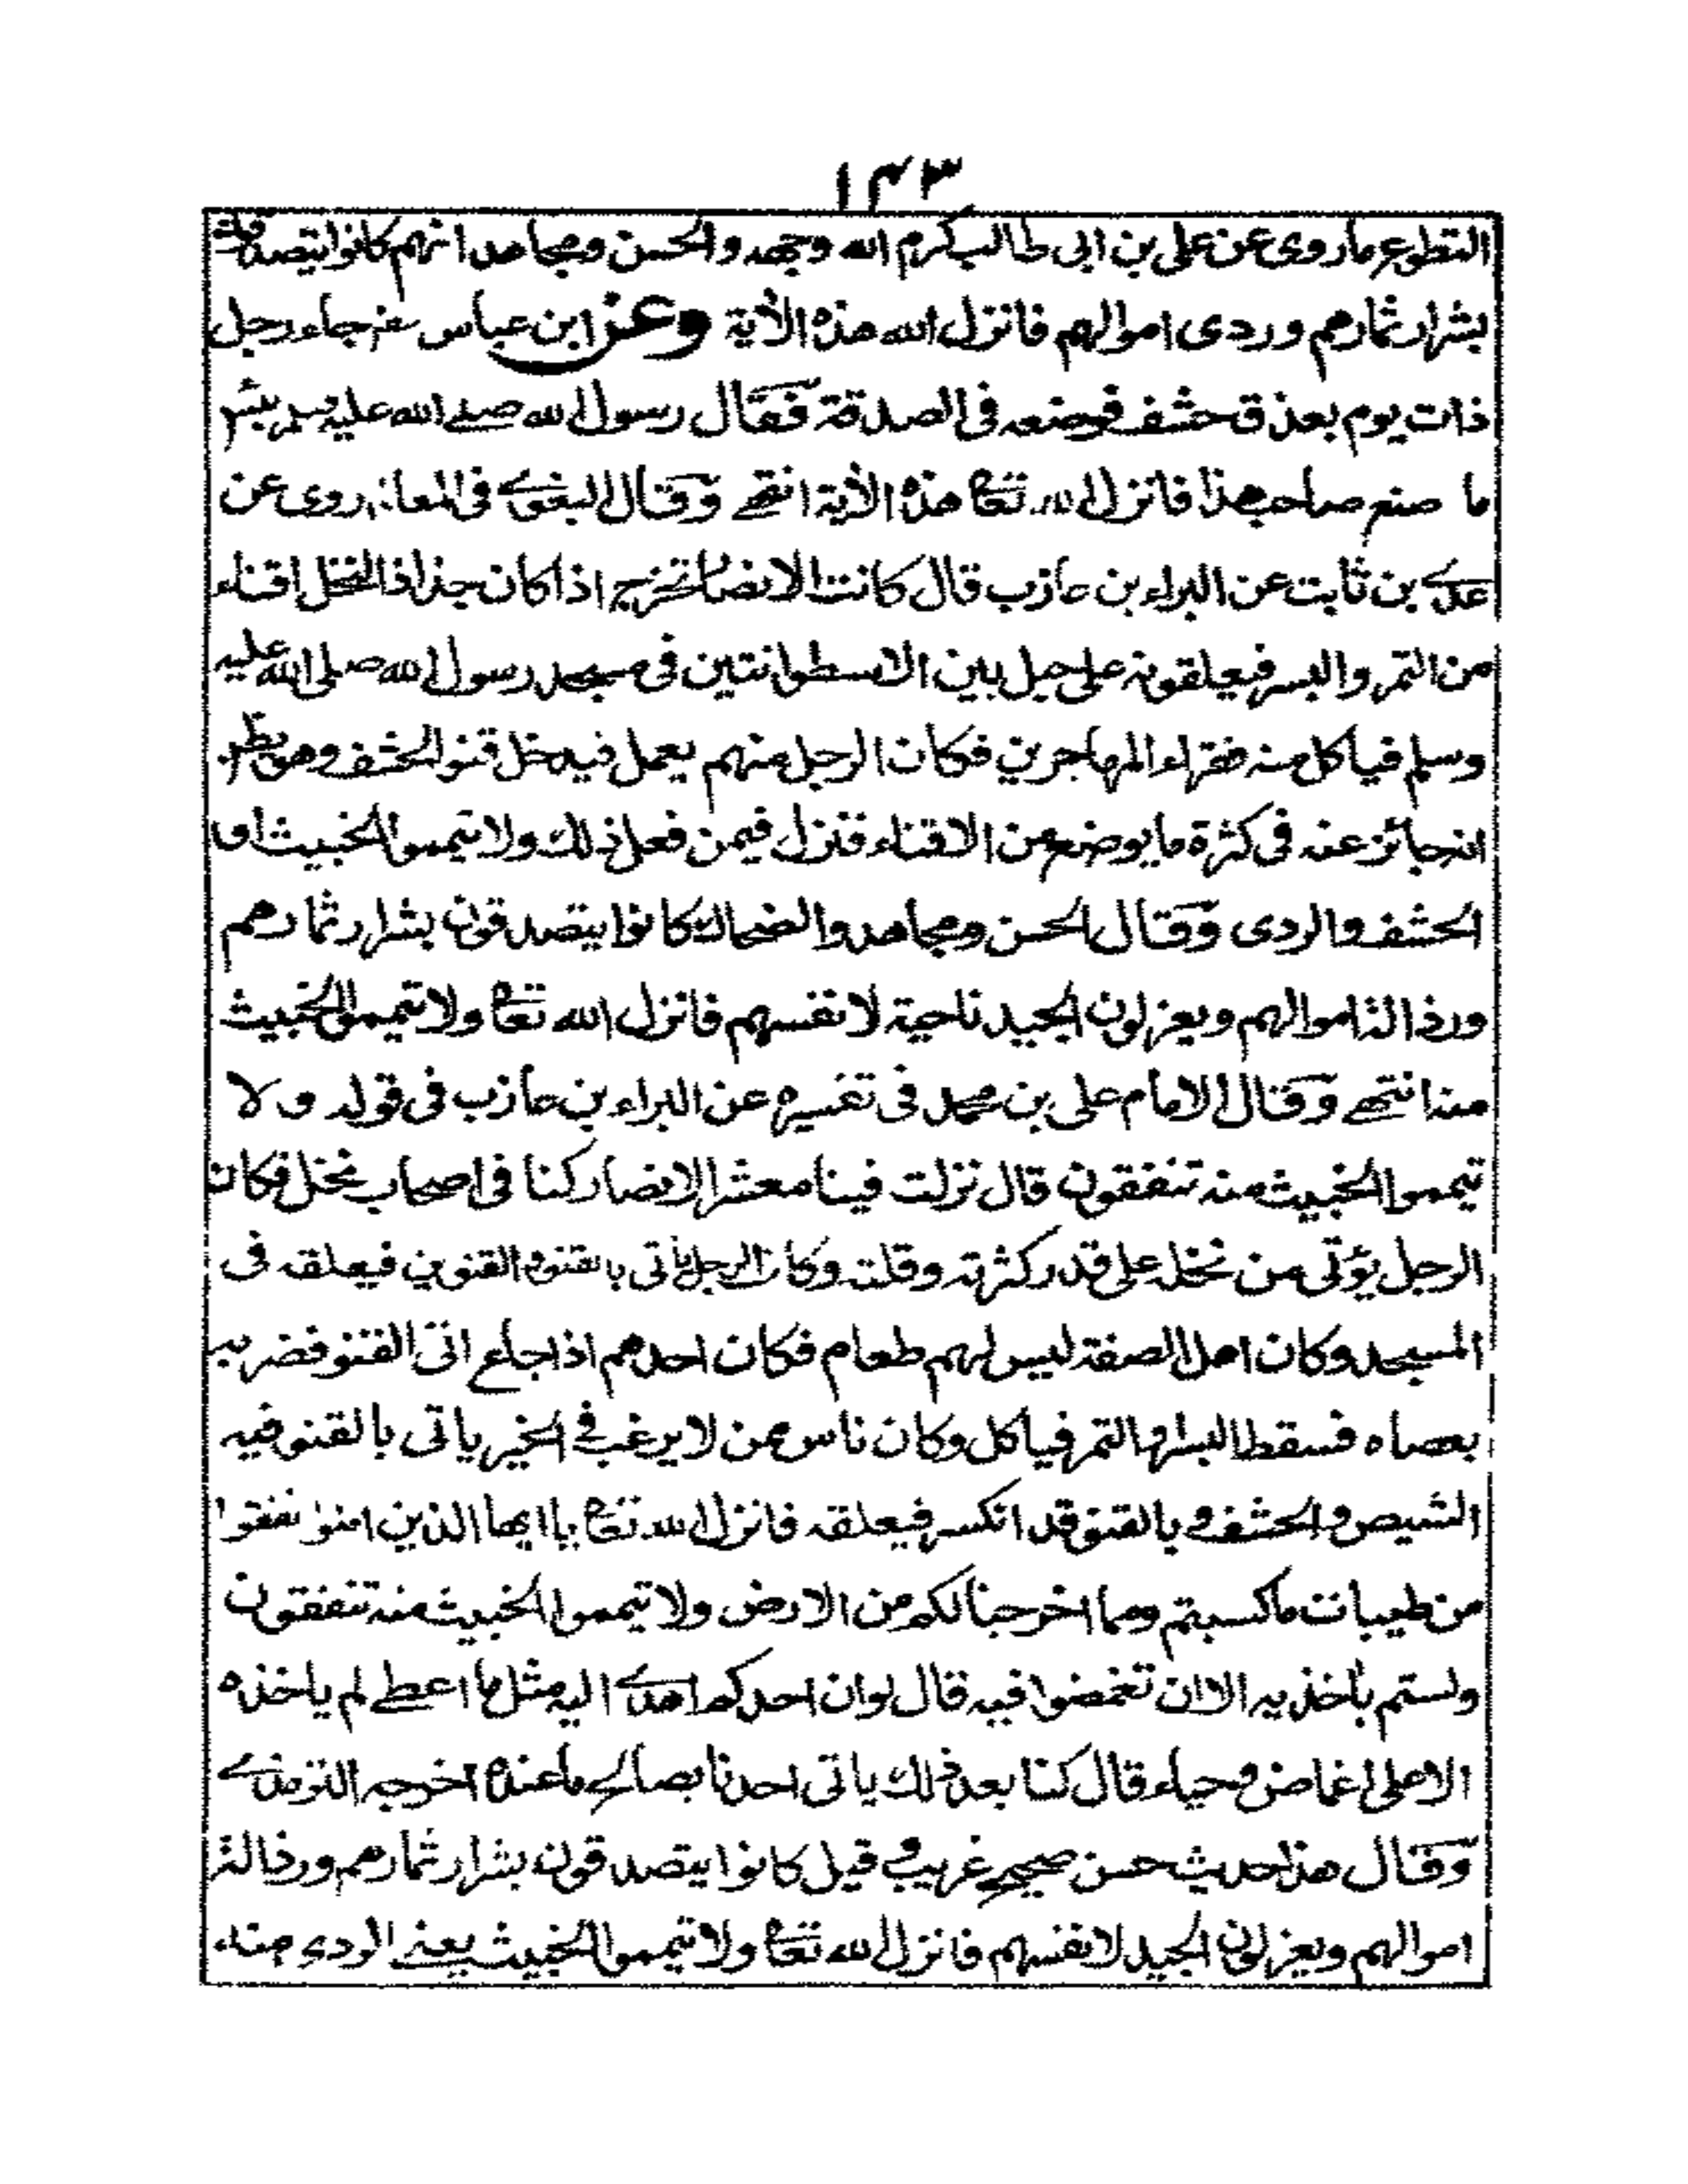 ١٤٣
التطوع ماروى عن على بن ابى طالب كرم الله وجهه والحسن ومجاهد انهم كانوا يتصدقون
بشرار ثمارهم وردى اموالهم فانزل الله هذه الأية وعن ابن عباس رضى جاء رجل
ذات يوم بعذق حشف فوضعه فى الصدقة فقال رسول الله صلے الله عليه وسلم بئس
ما صنع صاحب هذا فانزل الله تعالى هذه الأية انتهى وقال البغوى فى المعالم روى عن
عدى بن ثابت عن البراء بن عازب قال كانت الانصار تخرج اذا كان جذاذ النخل اقناء
من التمر والبسر فيعلقونه على حبل بين الاسطوانتين فى مسجد رسول الله صلى الله عليه
وسلم فياكل منه فقراء المهاجرين فكان الرجل منهم يعمل فيدخل قنو الحشف وهو يظن
انه جائز عنه فى كثرة ما يوضع من الاقناء فنزل فيمن فعل ذلك ولا تيمموا الخبيث اى
الحشف والردى وقال الحسن ومجاهد والضحاك كانوا يتصدقون بشرار ثمارهم
ورذالة اموالهم ويعزلون الجيد ناحية لانفسهم فانزل الله تعالى ولا تيمموا الخبيث
منه انتهى وقال الامام على بن محمد فى تفسيره عن البراء بن عازب فى قوله ولا
تيمموا الخبيث منه تنفقون قال نزلت فينا معشر الانصار كنا فى اصحاب نخل فكان
الرجل يؤتى من نخله على قدر كثرته وقلته وكان الرجل يأتى بالقنو والقنوين فيعلقه فى
المسجد وكان اهل الصفة ليس لهم طعام فكان احدهم اذا جاع اتى القنو فضربه
بعصاه فسقط البسر والتمر فياكل وكان ناس ممن لا يرغب فى الخير ياتى بالقنو فيه
الشيص والحشف و بالقنو قد انكسر فيعلقه فانزل الله تعالى يا ايها الذين امنوا انفقوا
من طيبات ما كسبتم ومما اخرجنا لكم من الارض ولا تيمموا الخبيث منه تنفقون
ولستم بأخذيه الا ان تغمضوا فيه قال لو ان احدكم اهدى اليه مثل ما اعطے لم ياخذه
الا على اغماض وحياء قال كنا بعد ذلك ياتى احدنا بصالح ما عنده اخرجه الترمذى
وقال هذا حديث حسن صحيح غريب و قيل كانوا يتصدقون بشرار ثمارهم ورذالة
اموالهم ويعزلون الجيد لانفسهم فانزل الله تعالى ولا تيمموا الخبيث يعنى الردى منه